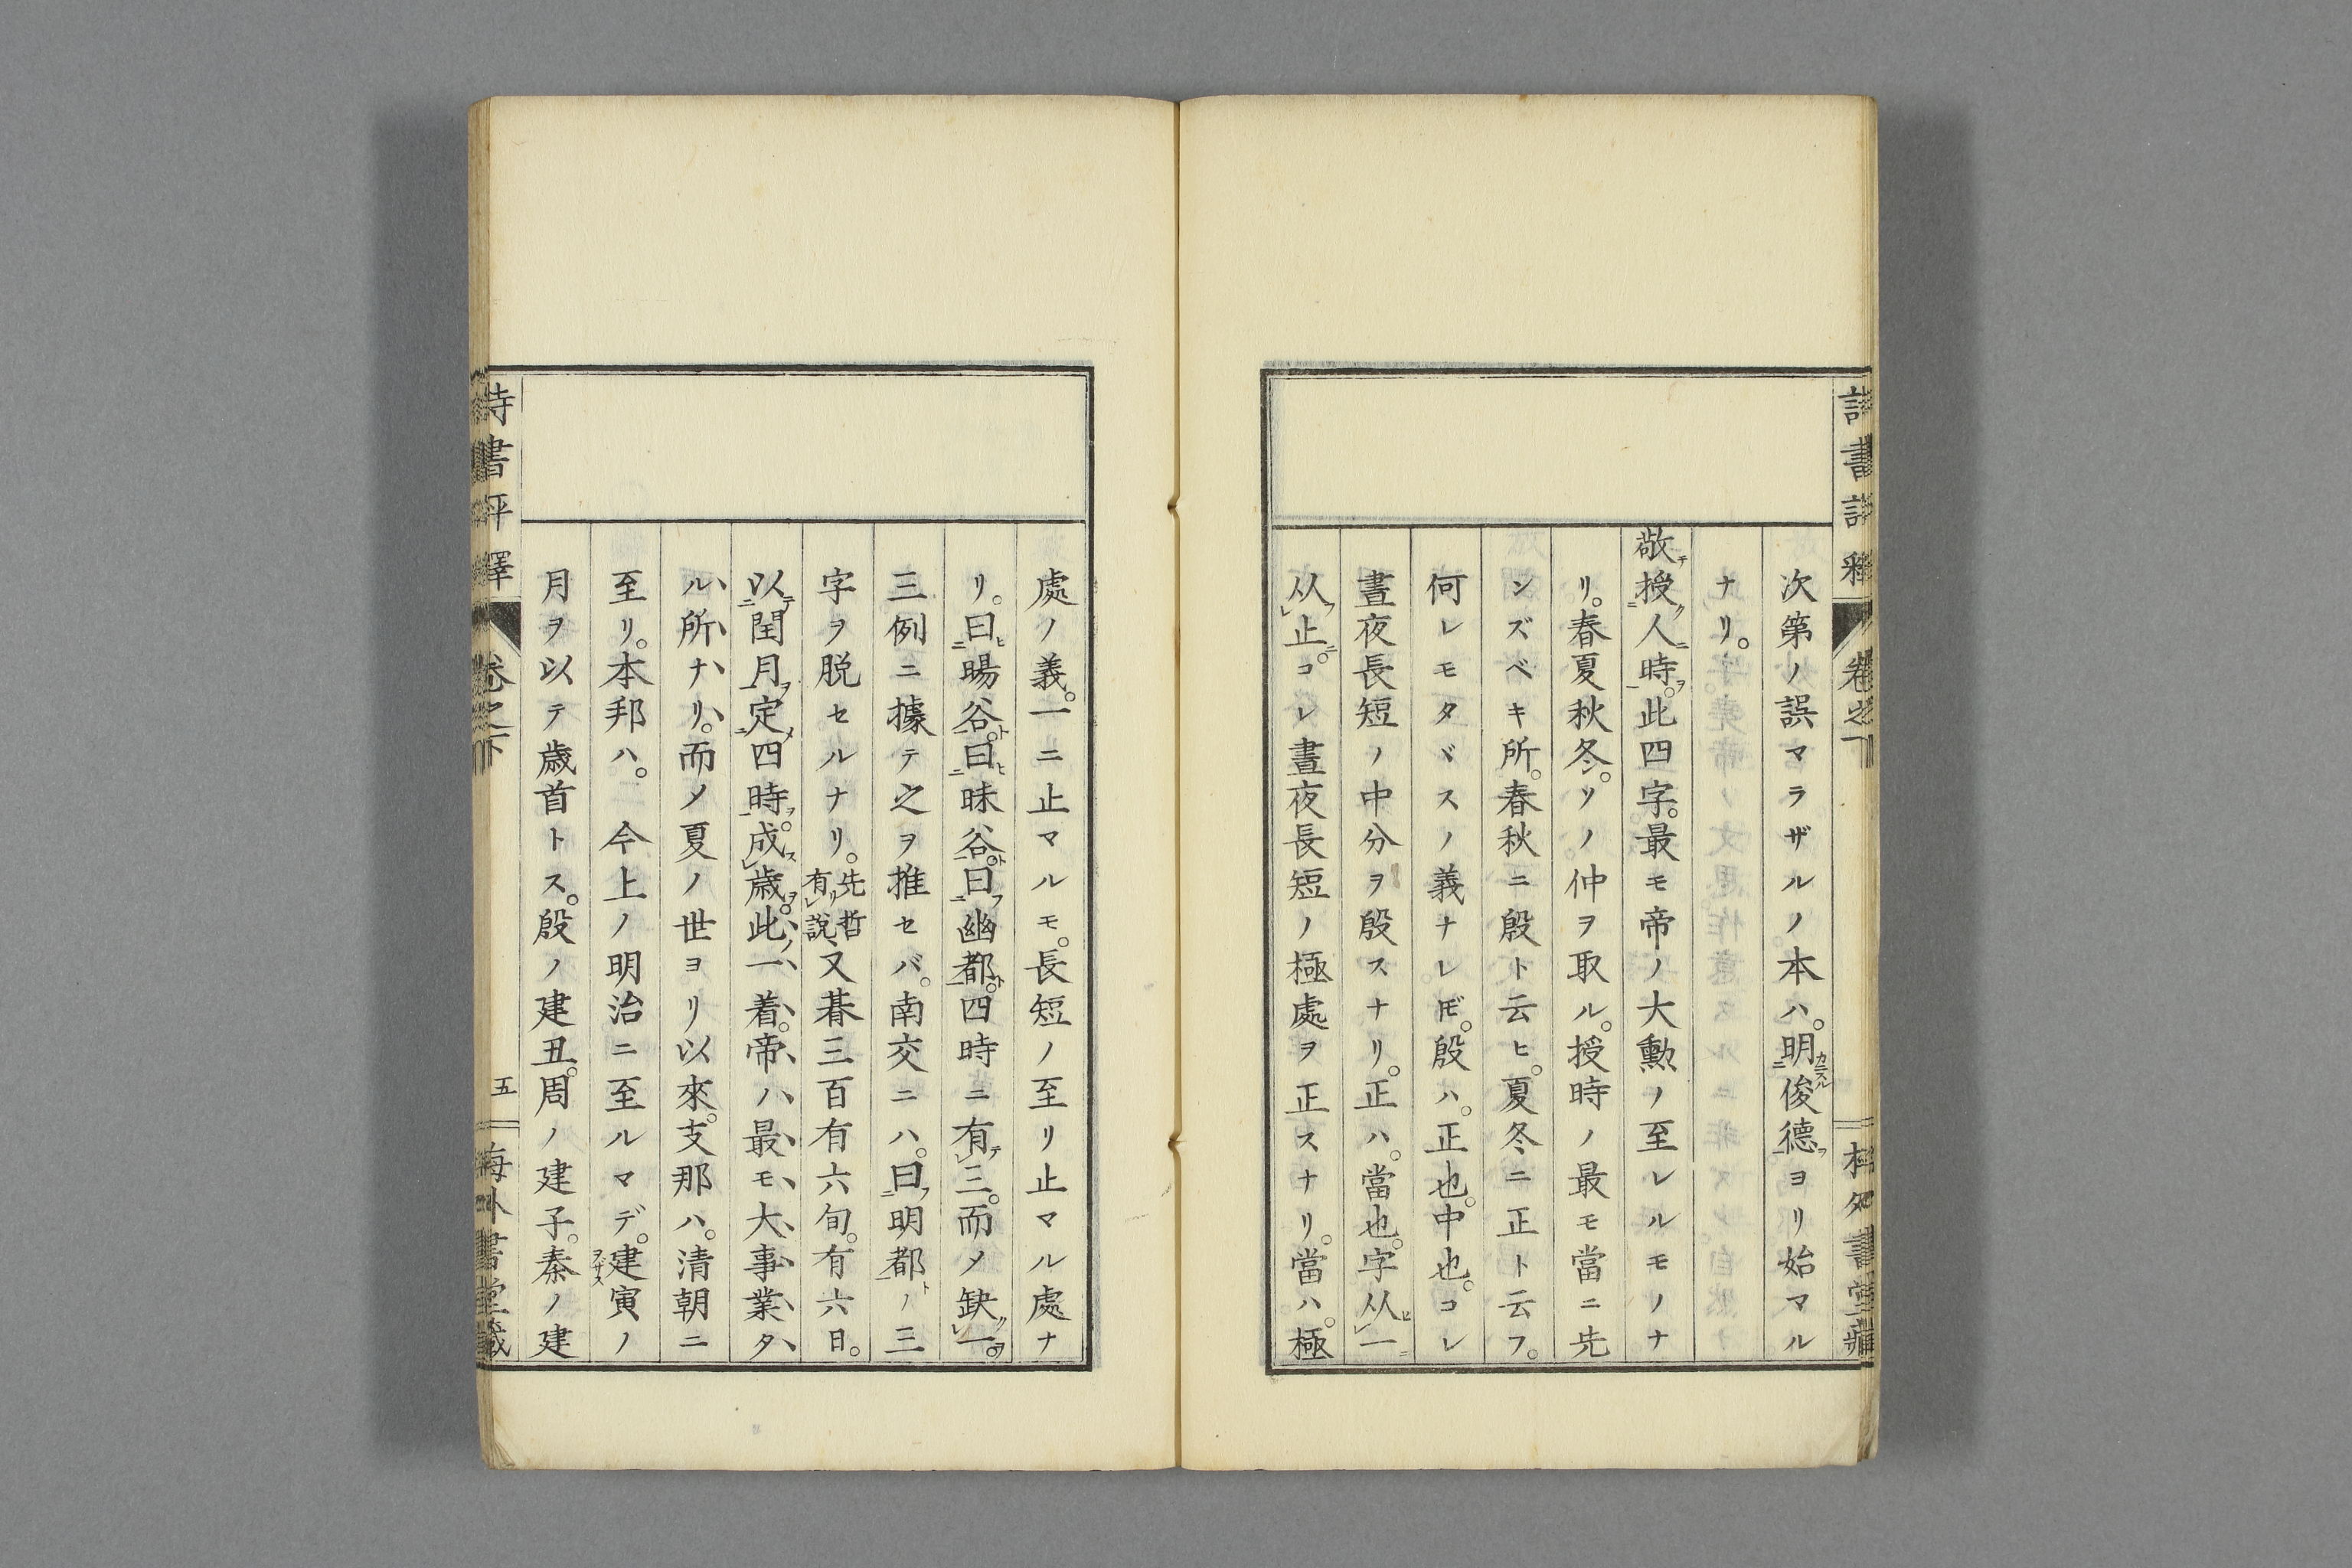 次第ノ誤マラザルノ本ハ。明カニスル二俊德ヲ一ヨリ始マル
ナリ。
敬テ授ク二人ニ時ヲ一。此四字。最モ帝ノ大勲ノ至レルモノナ
リ。春夏秋冬。ソノ仲ヲ取ル。授時ノ最モ當ニ先
ンズベキ所。春秋ニ殷ト云ヒ。夏冬ニ正ト云フ。
何レモタヾスノ義ナレ𪜈。殷ハ。正也。中也。コレ
晝夜長短ノ中分ヲ殷スナリ。正ハ。當也。字从ヒレ一ニ
从フレ止ニ。コレ晝夜長短ノ極處ヲ正スナリ。當ハ。極
處ノ義。一ニ止マルモ。長短ノ至リ止マル處ナ
リ。曰ヒ二暘谷ト一。曰ヒ二昧谷ト一。曰フ二幽都ト一。四時ニ有テレ三。而メ缺クレ一ヲ。
三例ニ據テ之ヲ推セバ。南交ニハ。曰フ二明都ト一ノ三
字ヲ脱セルナリ。先哲有リレ說、又朞三百有六旬。有六日。
以テ二閏月ヲ一定メ二四時ヲ一。成スレ歲ヲ。此ノ一着。帝ハ最モ大事業タ
ル所ナリ。而メ夏ノ世ヨリ以來。支那ハ。清朝ニ
至リ。本邦ハ。今上ノ明治ニ至ルマデ。建ヲザス寅ノ
月ヲ以テ歲首トス。殷ノ建丑。周ノ建子。秦ノ建
詩書評釋
卷之下
五
海外書堂藏